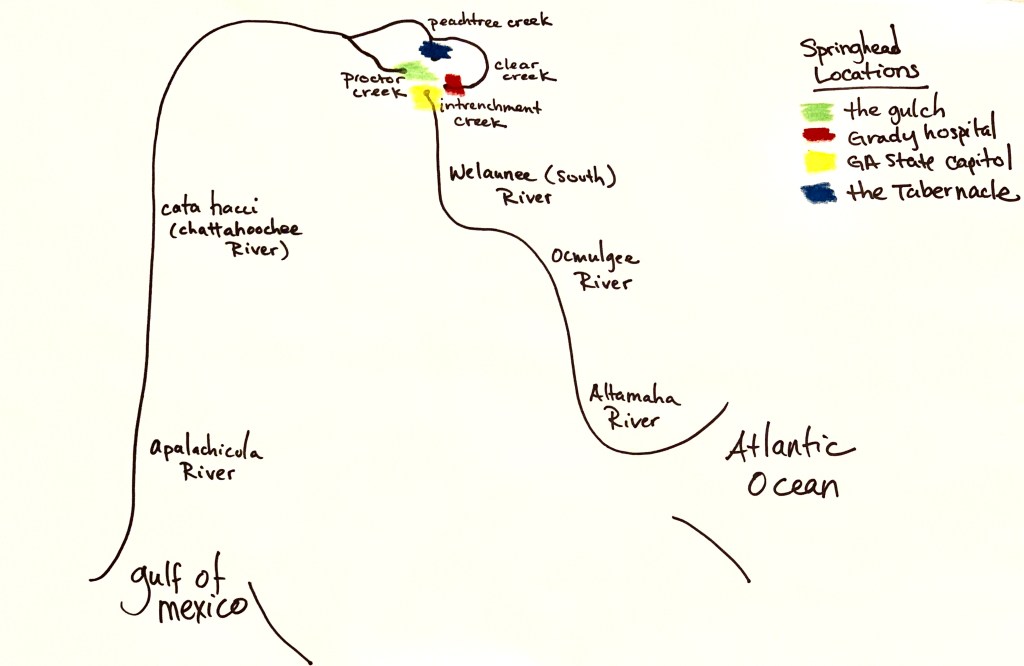 peachtree creek
clear
creek
proctor
creek
intrenchment
creek
Welaunee (South)
River
cata hacci
(chattahoochee
River)
Ocmulgee
River
Altamaha
River
apalachicola
River
Atlantic
Ocean
gulf of
mexico
Springhead
Locations
the gulch
Grady hospital
GA State Capitol
the Tabernacle